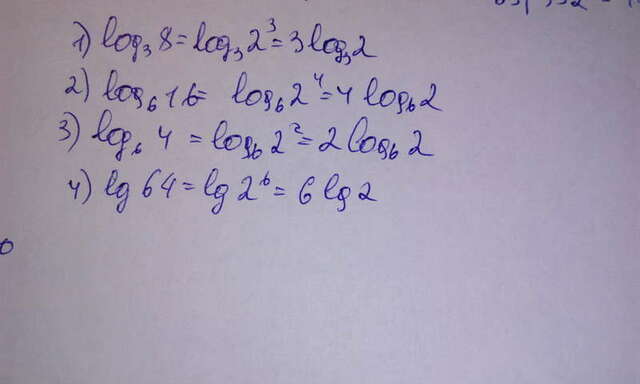 1) log₃ 8 = log₃ 2³ = 3 log₃ 2
2) log₆ 16 = log₆ 2⁴ = 4 log₆ 2
3) log₆ 4 = log₆ 2² = 2 log₆ 2
4) lg 64 = lg 2⁶ = 6 lg 2